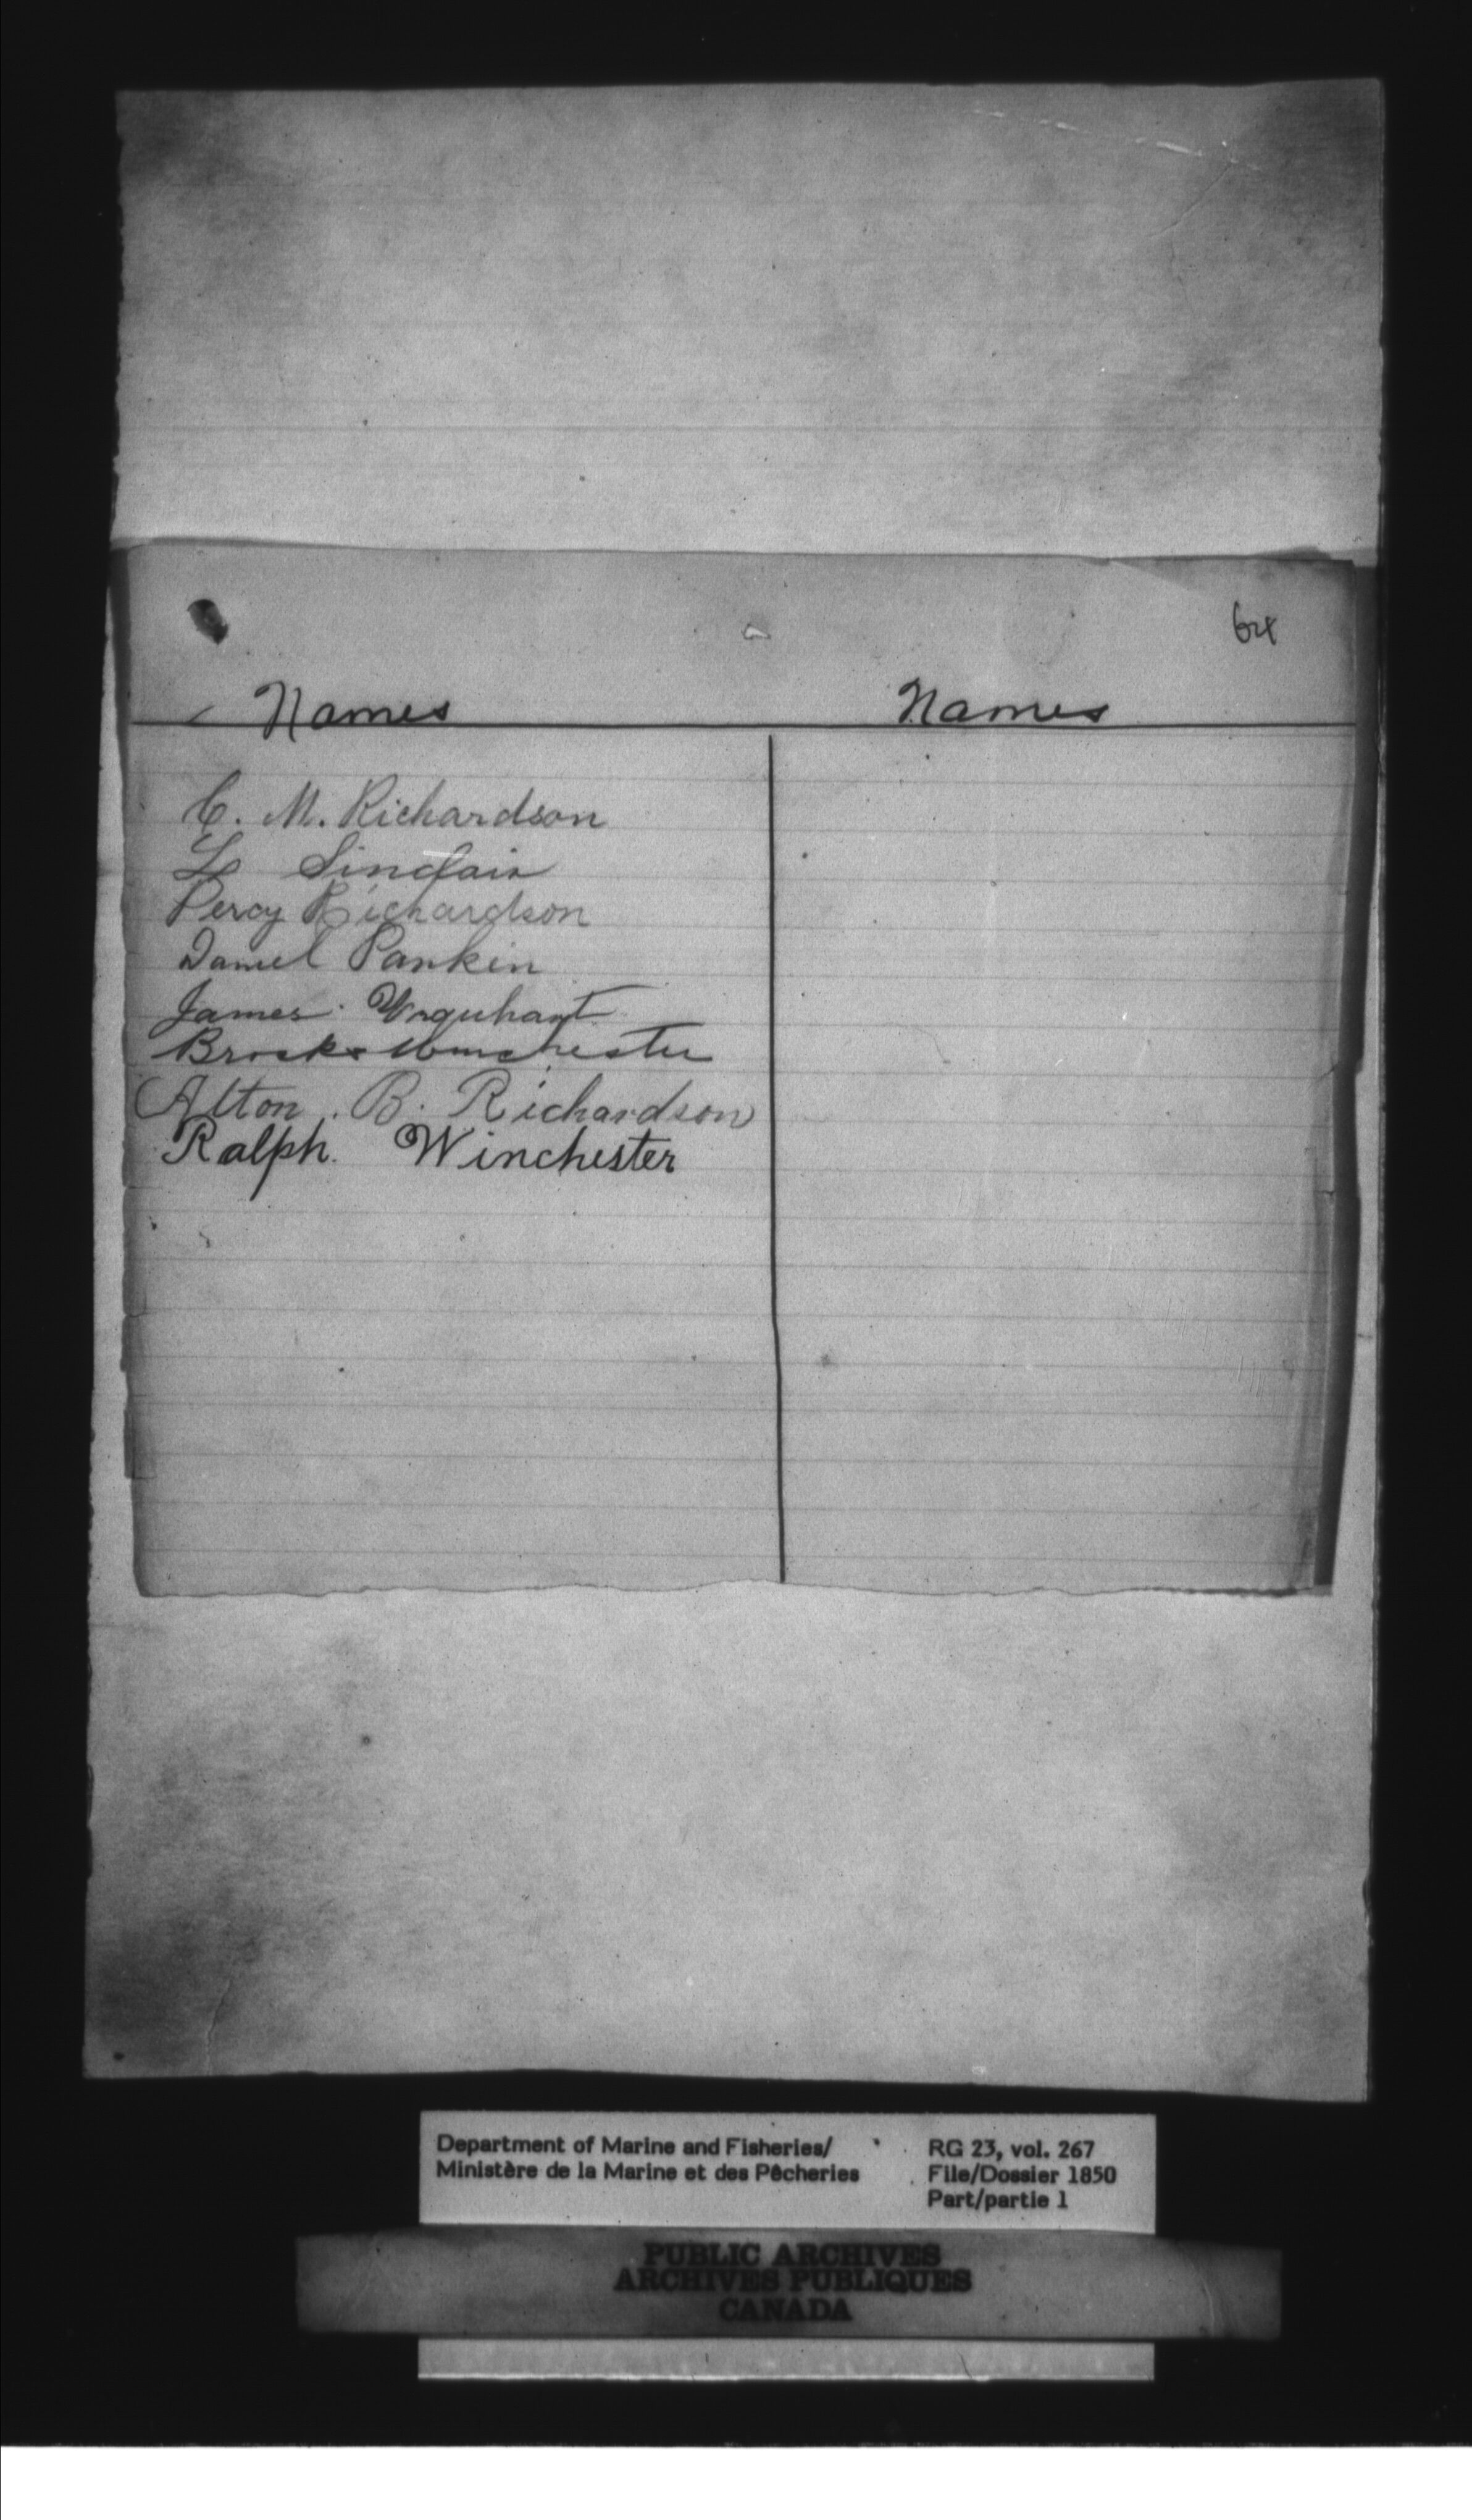 64
Names Names
C. M. Richardson
L Sinclair
Percy Richardson
Daniel Rankin
James Urquhart
Brooks Winchester
Alton. B. Richardson
Ralph. Winchester
Department of Marine and Fisheries/ RG 23, vol. 267
Ministère de la Marine et des Pêcheries File/Dossier 1850
Part/partie 1
PUBLIC ARCHIVES
ARCHIVES PUBLIQUES
CANADA